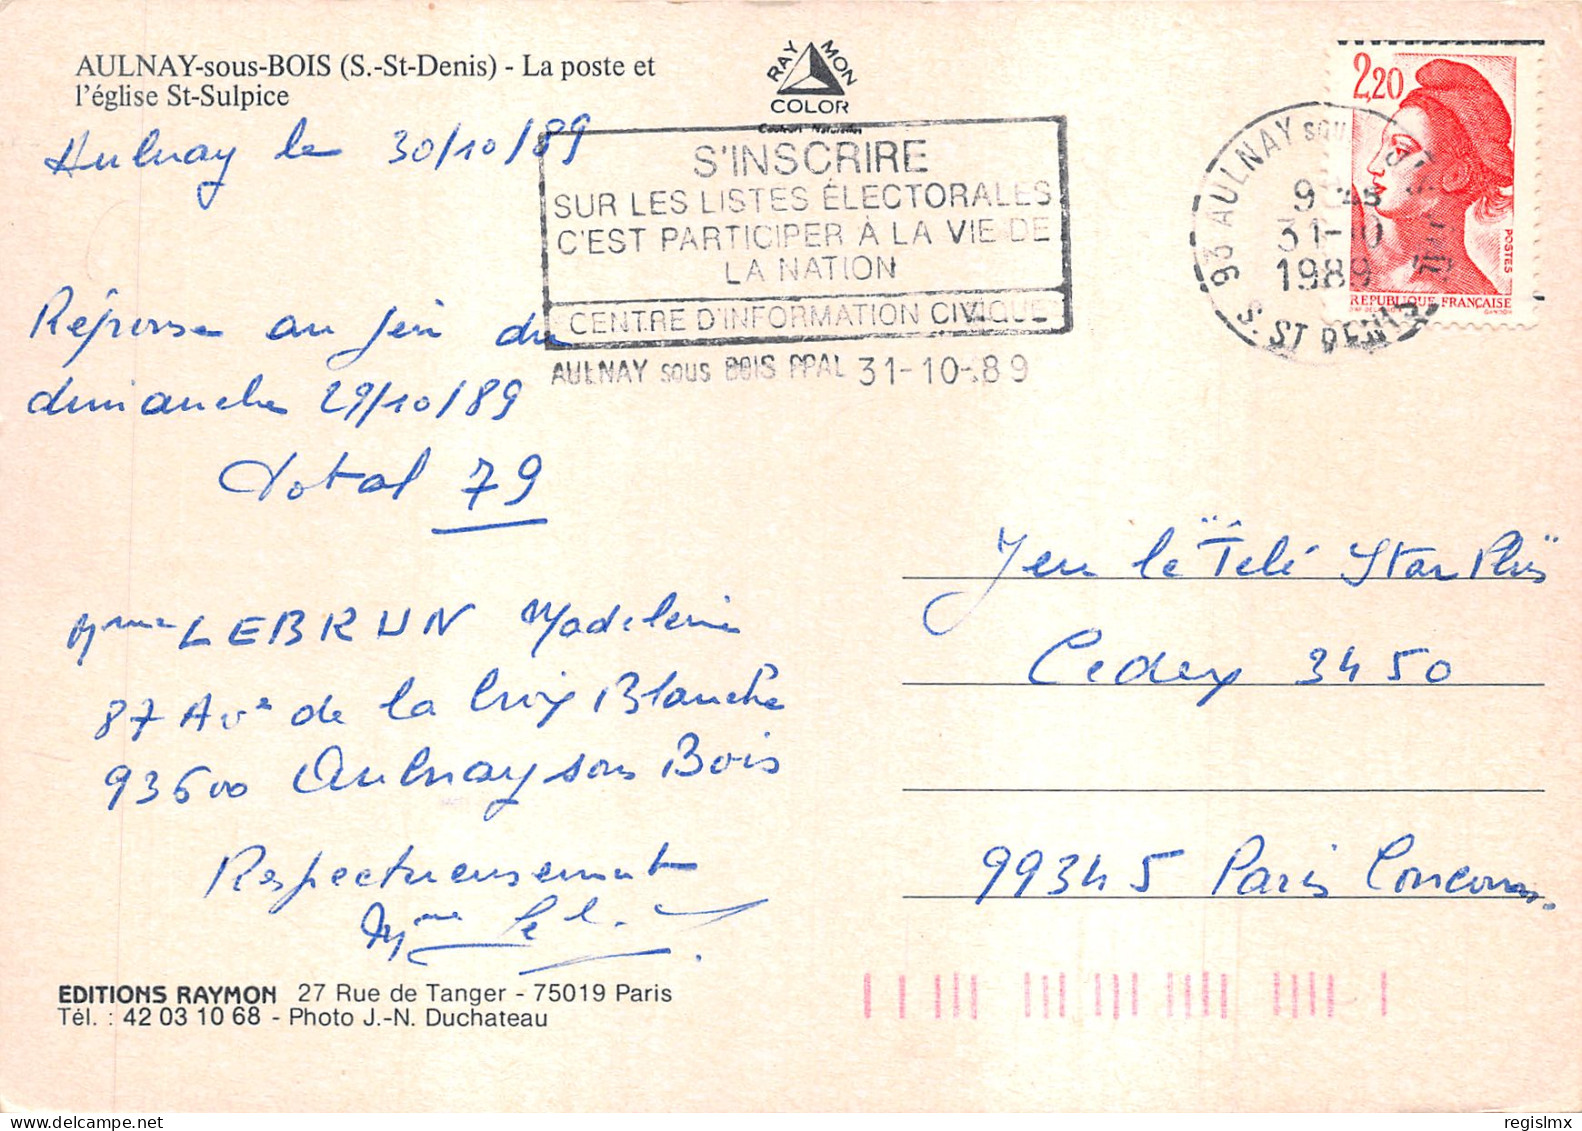 AULNAY-sous-BOIS (S.-St-Denis) - La poste et
l'église St-Sulpice
RAYMON
COLOR
Aulnay le 30/10/89
S'INSCRIRE
SUR LES LISTES ÉLECTORALES
C'EST PARTICIPER À LA VIE DE
LA NATION
CENTRE D'INFORMATION CIVIQUE
AULNAY SOUS BOIS PPAL 31-10-89
93 AULNAY SOUS
31-10
1989
S. ST DENIS
2,20
POSTES
REPUBLIQUE FRANÇAISE
GANDON
Réponse au jeu du
dimanche 29/10/89
Total 79
Mme LEBRUN Madeleine
87 Ave de la Croix Blanche
93600 Aulnay sous Bois
Respectueusement
Mme
Jeu le "Télé Star Plus"
Cedex 3450
99345 Paris Concours
EDITIONS RAYMON 27 Rue de Tanger - 75019 Paris
Tél. : 42 03 10 68 - Photo J.-N. Duchateau
regislmx